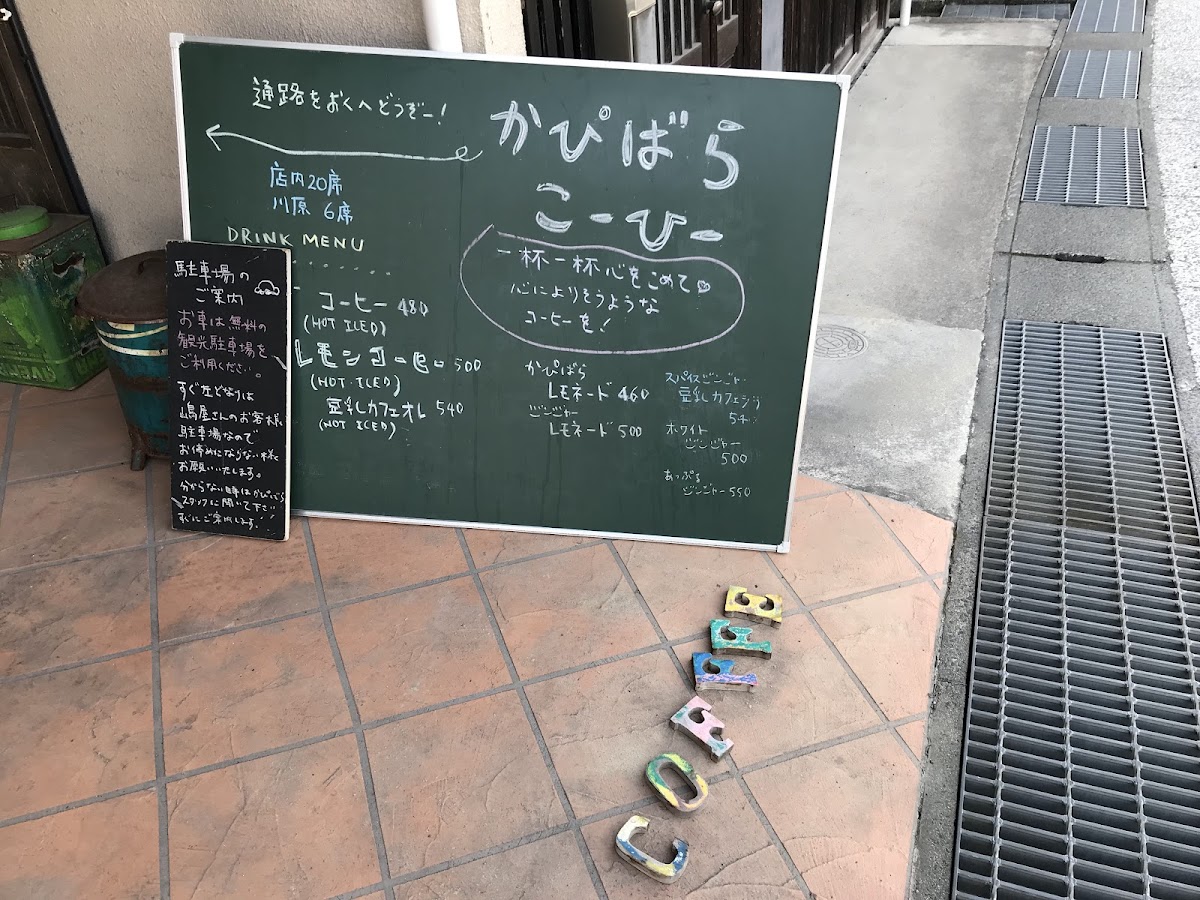 通路をおくへどうぞー!
店内20席
川原 6席
DRINK MENU
コーヒー 480
(HOT ICED)
レモンコーヒー 500
(HOT ICED)
豆乳カフェオレ 540
(HOT ICED)
かぴばら
こーひー
一杯一杯心をこめて
心によりそうような
コーヒーを!
かぴばら
レモネード 460
ジンジャー
レモネード 500
スパイスジンジャー
豆乳カフェラテ
540
ホワイト
ジンジャー
500
あっぷる
ジンジャー 550
駐車場の
ご案内
お車は無料の
観光駐車場を
ご利用ください。
すぐ左どなりは
嶋屋さんのお客様
駐車場なので
お停めにならない様
お願いいたします。
分からない事はかぴばら
スタッフに聞いて下さい
すぐにご案内します!
COFFEE